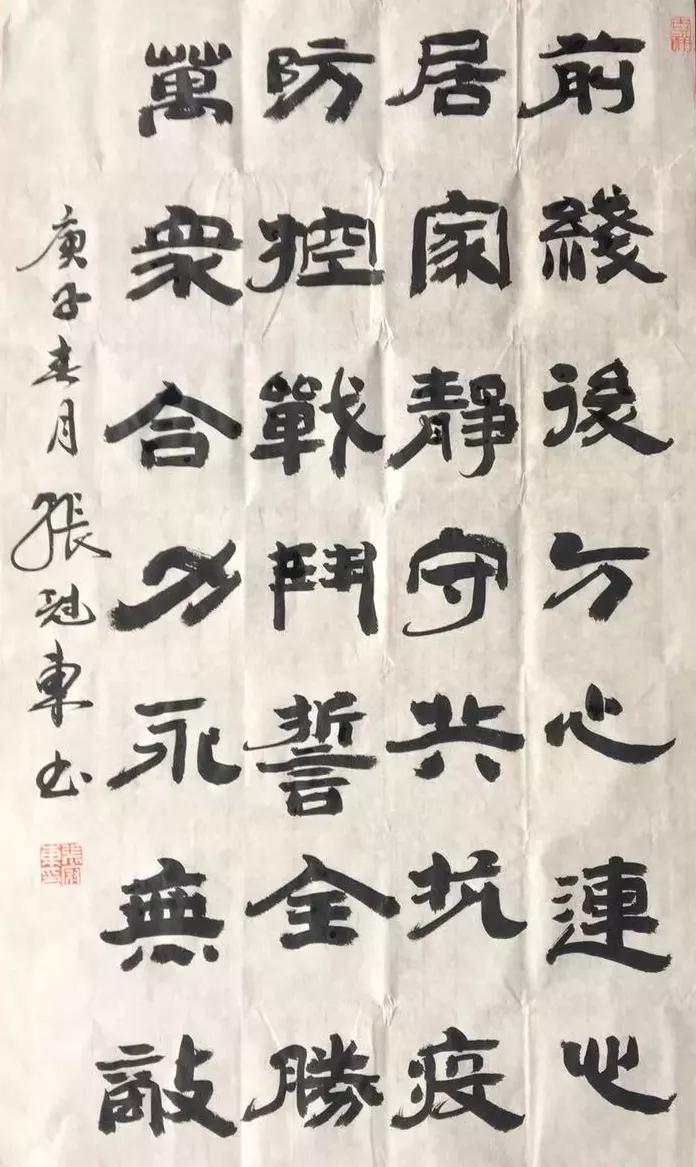 前綫後方心連心
居家靜守共抗疫
防控戰鬥誓全勝
萬衆合力永無敵
庚子春月張冠東書